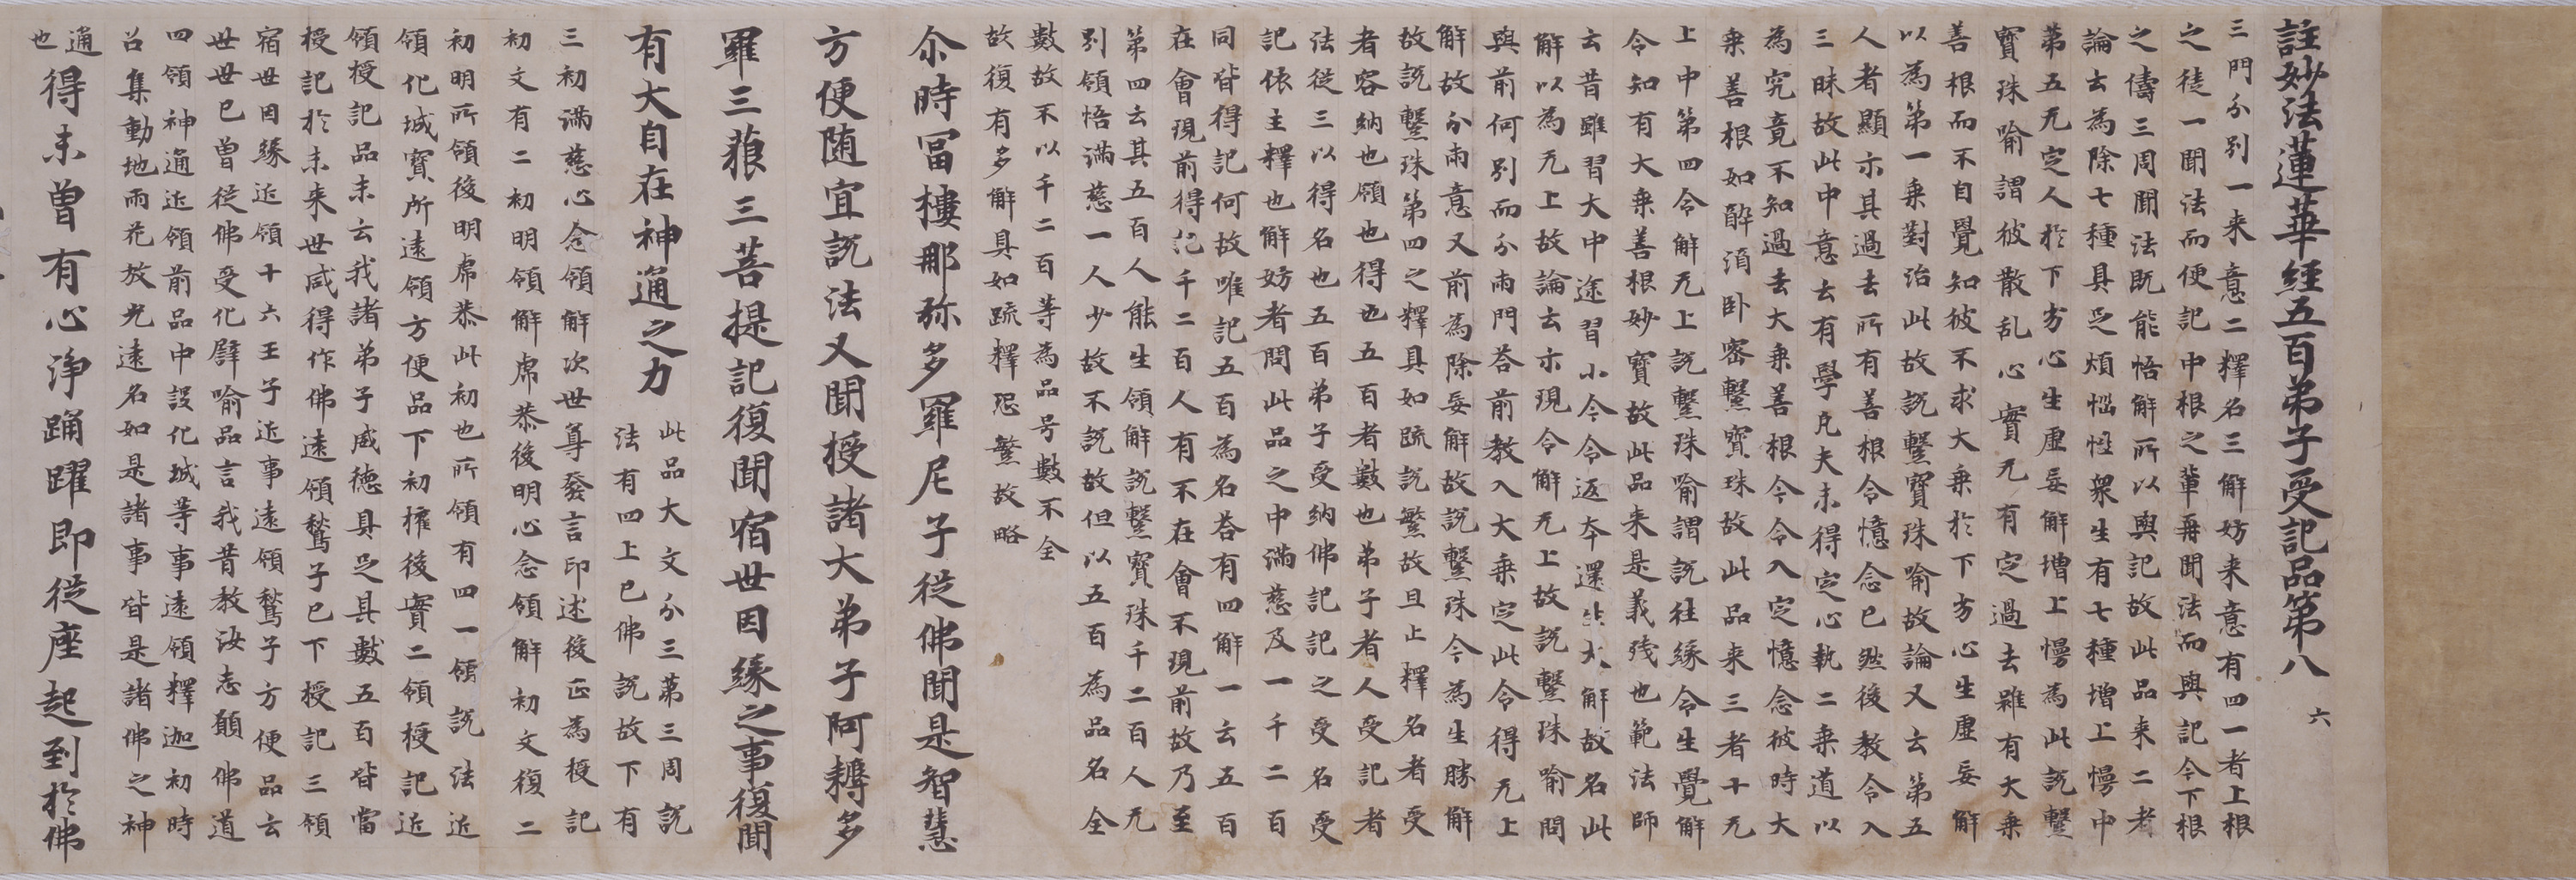 註妙法蓮華經五百弟子受記品第八　六
三門分別一来意二釋名三解妨来意有四一者上根
之徒一聞法而便記中根之輩再聞法而與記今下根
之儔三周聞法既能悟解所以與記故此品来二者
論云為除七種具足煩惱性衆生有七種增上慢中
第五无定人於下劣心生虛妄解增上慢為此説繫
寳珠喻謂彼散乱心實无有定過去雖有大乗
善根而不自覺知彼不求大乗於下劣心生虛妄解
以為第一乗對治此故説繫寳珠喻故論又云第五
人者顯示其過去所有善根令憶念已然後教令入
三昧故此中意云有學凡夫未得定心執二乗道以
為究竟不知過去大乗善根今令入定憶念彼時大
乗善根如酔須卧密繫寳珠故此品来三者十无
上中第四令解无上説繫珠喻謂説往緣令生覺解
令知有大乗善根妙寳故此品来是義殘也範法師
云昔雖習大中途習小今令返本還生大解故名此
解以為无上故論云示現令解无上故説繫珠喻問
與前何別而分兩門荅前教入大乗定此令得无上
解故分兩意又前為除妄解故説繫珠今為生勝解
故説繫珠第四之釋具如䟽説繁故且止釋名者受
者容納也領也得也五百者數也弟子者人受記者
法從三以得名也五百弟子受納佛記記之受名受
記依主釋也解妨者問此品之中滿慈及一千二百
同皆得記何故唯記五百為名荅有四解一云五百
在會現前得記千二百人有不在會不現前故乃至
第四云其五百人能生領解説繫寳珠千二百人无
別領悟滿慈一人少故不説故但以五百為品名全
數故不以千二百等為品号數不全
故復有多解具如䟽釋恐繁故略
尒時冨樓那弥多羅尼子從佛聞是智慧
方便随宜説法又聞授諸大弟子阿耨多
羅三藐三菩提記復聞宿世因緣之事復聞
有大自在神通之力
此品大文分三第三周説
法有四上已佛説故下有
三初滿慈心念領解次世尊發言印述後正為授記
初文有二初明領解席恭後明心念領解初文復二
初明所領後明席恭此初也所領有四一領説法近
領化城寳所遠領方便品下初權後實二領授記近
領授記品末云我諸弟子威德具足其數五百皆當
授記於未来世咸得作佛遠領鶖子已下授記三領
宿世因緣近領十六王子近事遠領鶖子方便品云
世世已曽從佛受化譬喻品言我昔教汝志願佛道
四領神通近領前品中設化城等事遠領釋迦初時
召集動地雨花放光遠名如是諸事皆是諸佛之神
通
也
得未曽有心淨踊躍即從座起到於佛